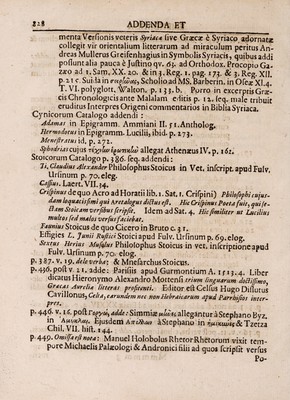 828 ADDENDA ET
menta Versionis veteris Syriacæ sive Græcæ è Syriaco adornatæ
collegit vir orientalium litterarum ad miraculum peritus An-
dreas Mullerus Greifenhagius in Symbolis Syriacis, quibus addi
possunt alia pauca è Justino qv. 63. ad Orthodox. Procopio Ga-
zæo ad 1. Sam. XX. 20. & in 3. Reg. 1. pag. 173. & 3. Reg. XII.
p. 21 Suida in Scholio ad MS. Barberin. in Oseæ XI. 4.
T. VI. polyglott. Walton. p. 133. b. Porro in excerptis Græ-
cis Chronologicis ante Malalam editis p. 12. seq. male tribuit
eruditus Interpres Origeni commentarios in Biblia Syriaca.
Cynicorum Catalogo addendi:
Adamas in Epigramm. Ammiani II. 51. Antholog.
Hermodotus in Epigramm. Lucilii, ibid. p. 273.
Menestratus id. p. 272.
Sphodrias cujus allegat Athenæus IV. p. 162.
Stoicorum Catalogo p. 386. seq. addendi:
Ti. Claudius Alexander Philosophus Stoicus in Vet. inscript. apud Fulv.
Ursinum p. 70. eleg.
Cassius. Laert. VII. 34.
Crispinus de quo Acro ad Horatii lib. 1. Sat. 1. Crispini) Philosophi cujus-
dam loquacissimi qui Aretalogus dictus est. Hic Crispinus Poeta fuit, qui se-
ctam Stoicam versibus scripsit. Idem ad Sat. 4. Hic similiter ut Lucilius
multos sed malos versus faciebat.
Faunius Stoicus de quo Cicero in Bruto c. 31.
Effigies L. Junii Rustici Stoici apud Fulv. Ursinum p. 69. elog.
Sextus Herius Musulus Philosophus Stoicus in vet. inscriptione apud
Fulv. Ursinum p. 70. elog.
p. 387. v. 19. dele verba: & Mnesarchus Stoicus.
P. 436. post v. 21. adde: Parisiis apud Gurmontium A. 1523. 4. Liber
dicatus Hieronymo Alexandro Mortensi trium linguarum doctissimo,
Græcas Aurelia litteras professori. Editor est Celsus Hugo Dissutus
Cavillonus, Celta, earundem nec non Hebraicarum apud Parrhisios inter-
pres.
P. 446. v. 16. post adde: Simmiæ allegantur à Stephano Byz.
in Ejusdem à Stephano in & Tzetza
Chil. VII. hist. 144.
P. 449. Omissa est nota: Manuel Holobolus Rhetor Rhetorum vixit tem-
pore Michaelis Palæologi & Andronici filii ad quos scripsit versus
Po-